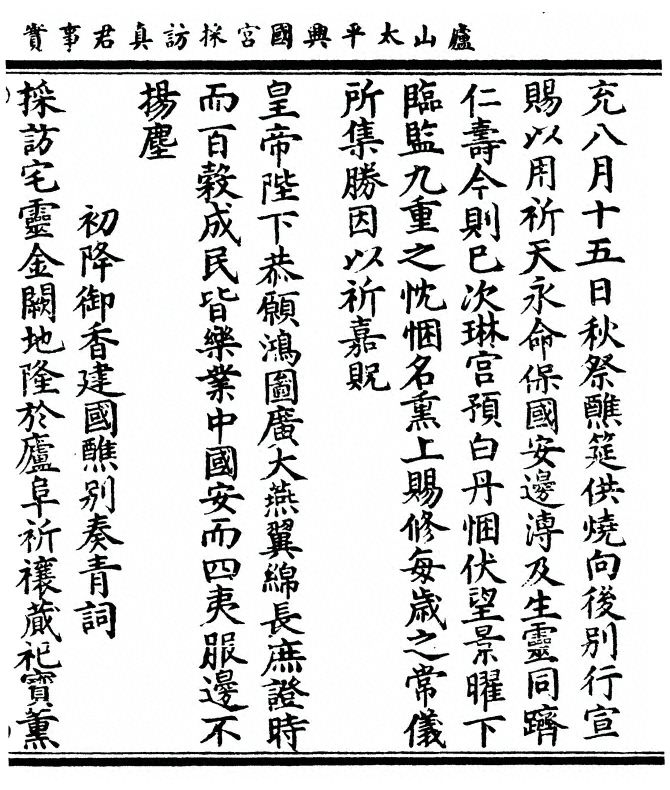 廬山太平興國宮採訪真君事實
充八月十五日秋祭醮筵供燒向後別行宣
賜以用祈天永命保國安邊溥及生靈同躋
仁壽今則已次琳宮預白丹悃伏望景曜下
臨監九重之忱悃名熏上賜修每歲之常儀
所集勝因以祈嘉貺
皇帝陛下恭願鴻圖廣大燕翼綿長庶證時
而百穀成民皆樂業中國安而四夷服邊不
揚塵
初降御香建國醮別奏青詞
採訪宅靈金闕地隆於廬阜祈禳蕆祀寶薰